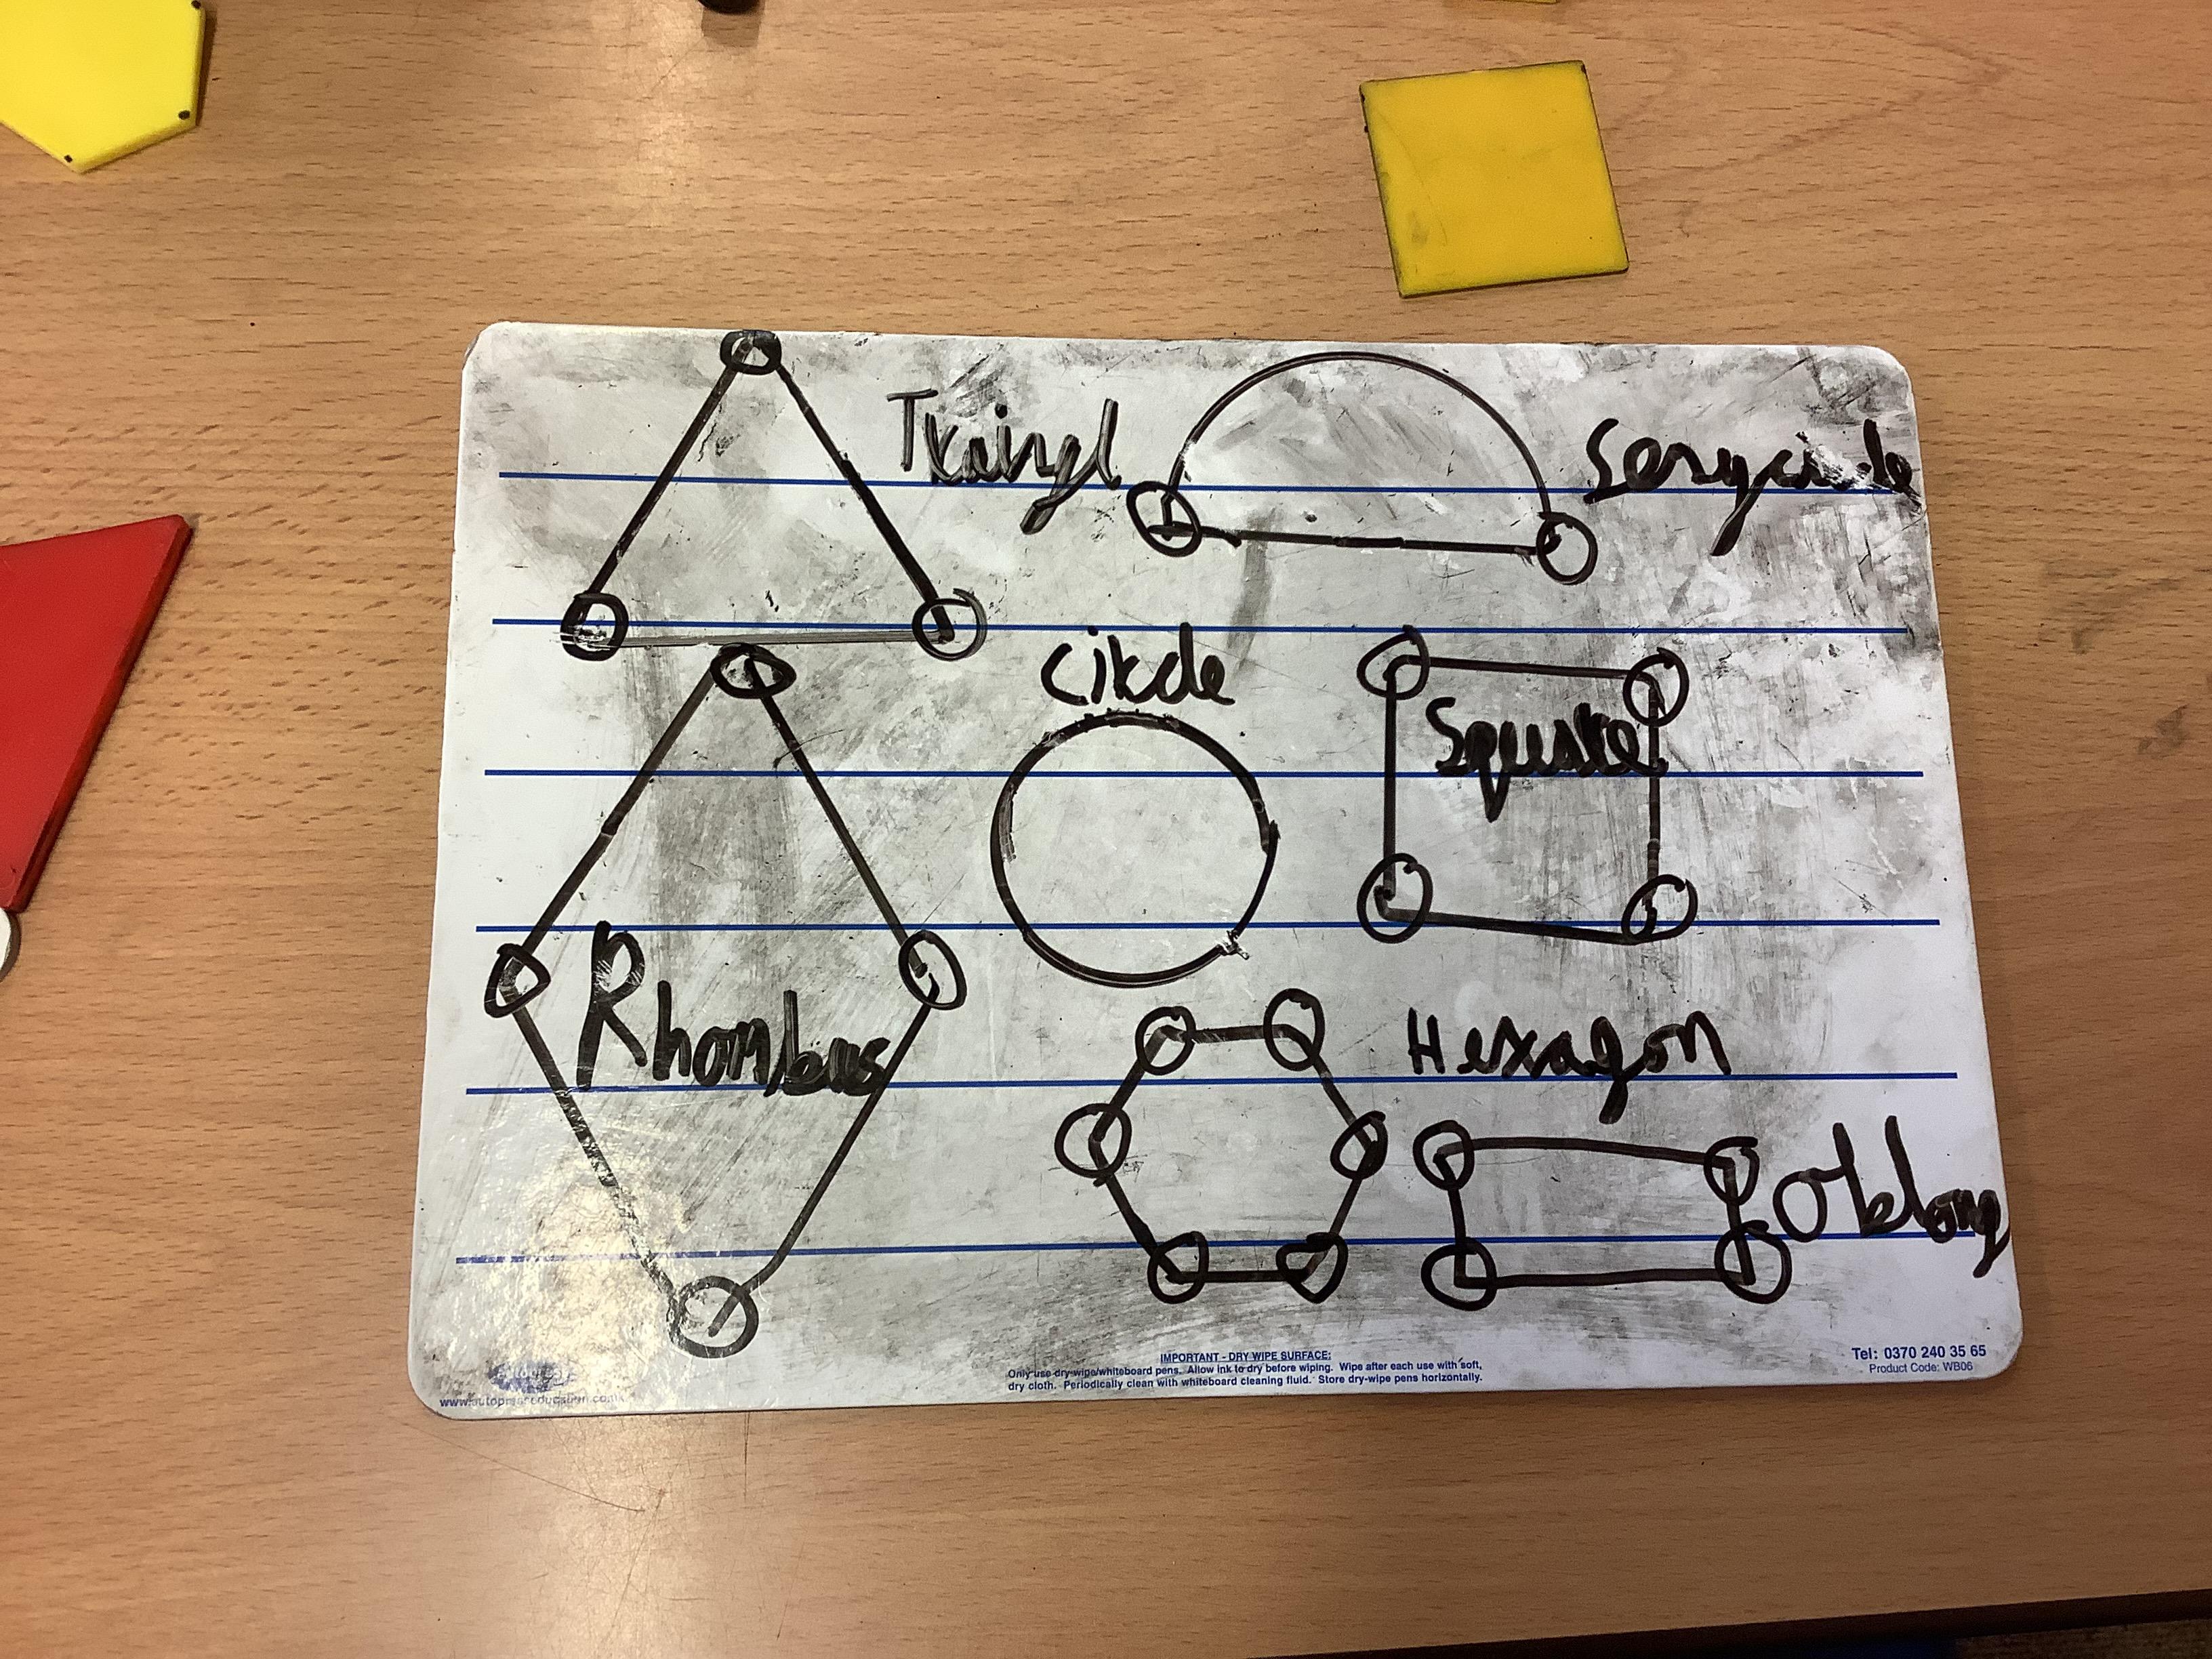 Traingl
Semycircle
Cikcle
Squere
Rhombus
Hexagon
Oblong
IMPORTANT - DRY WIPE SURFACE:
Only use dry-wipe/whiteboard pens. Allow ink to dry before wiping. Wipe after each use with soft,
dry cloth. Periodically clean with whiteboard cleaning fluid. Store dry-wipe pens horizontally.
Tel: 0370 240 35 65
Product Code: WB06